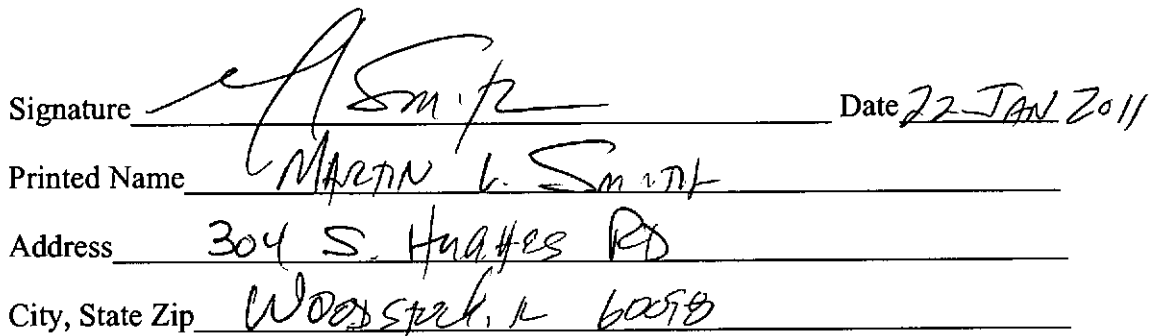 Signature M Smith Date 22 JAN 2011
Printed Name MARTIN L. SMITH
Address 304 S. HUGHES RD
City, State Zip WOODSTOCK, IL 60098